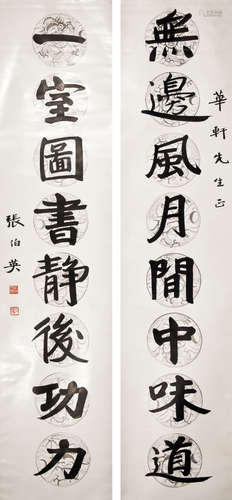 無邊風月間中味道
華軒先生正
一室圖書靜後功力
張伯英